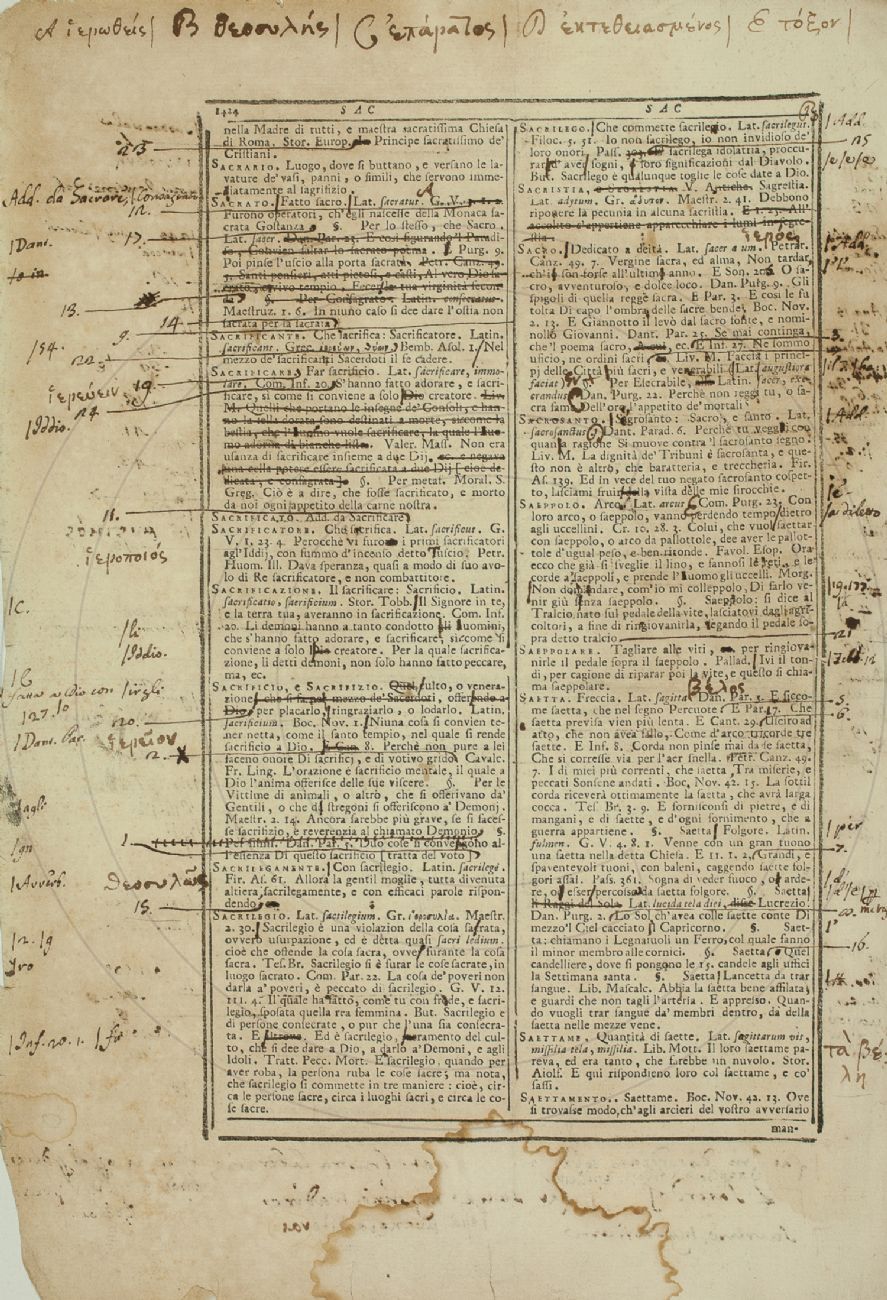 A ἱερωθείς | B θεοσυλής | C ἐπάρατος | D ἐκτεθειασμένος | E τόξον |
1424 SAC
nella Madre di tutti, e maestra sacratissima Chiesa
di Roma. Stor. Europ. Principe sacratissimo de'
Cristiani.
SACRARIO. Luogo, dove si buttano, e versano le la-
vature de' vasi, panni, o simili, che servono imme-
diatamente al sagrifizio.
SACRATO. Fatto sacro. Lat. sacratus. G. V.
Furono operatori, ch'egli nascesse della Monaca sa-
crata Gostanza §. Per lo stesso, che Sacro.
Lat. sacer. Dan. Par. 23. E così figurando'l Paradi-
so, Convien saltar lo sacrato poema. Purg. 9.
Poi pinse l'uscio alla porta sacrata. Petr. Canz.
Santi pensieri, atti pietosi, e casti, Al vero Dio sa-
crato, e vivo tempio, Fecero in tua virginità fecon-
da. §. Per Consagrato. Latin. consecratus.
Maestruz. 1. 6. In niuno caso si dee dare l'ostia non
sacrata per la sacrata
SACRIFICANTE. Che sacrifica: Sacrificatore. Latin.
sacrificans. Grec. Bemb. Asol. 1. Nel
mezzo de' sacrificanti Sacerdoti il fe cadere.
SACRIFICARE. Far sacrificio. Lat. sacrificare, immo-
lare. Com. Inf. 20. S'hanno fatto adorare, e sacri-
ficare, sì come si conviene a solo Dio creatore. Liv.
M. Quelli che portano le insegne de' Consoli, e han-
no la sella dorata sono destinati a morte, siccome la
bestia, che l'huomo vuole sacrificare, la quale l'huo-
mo adorna di bianche liste. Valer. Mass. Non era
usanza di sacrificare insieme a due Dij. ec. e negava
una cella potere essere sacrificata a due Dij [cioè de-
dicata, e consagrata] §. Per metaf. Moral. S.
Greg. Ciò è a dire, che fosse sacrificato, e morto
da noi ogni appetito della carne nostra.
SACRIFICATO. Add. da Sacrificare
SACRIFICATORE. Che sacrifica. Lat. sacrificus. G.
V. 1. 23. 4. Perocchè vi furono i primi sacrificatori
agl'Iddij, con fummo d'incenso detto Tuscio. Petr.
Huom. Ill. Dava speranza, quasi a modo di suo avo-
lo di Re sacrificatore, e non combattitore.
SACRIFICAZIONE. Il sacrificare: Sacrificio. Latin.
sacrificatio, sacrificium. Stor. Tobb. Il Signore in te,
e la terra tua, averanno in sacrificazione. Com. Inf.
20. Li demoni hanno a tanto condotto gli huomini,
che s'hanno fatto adorare, e sacrificare, siccome si
conviene a solo Dio creatore. Per la quale sacrifica-
zione, li detti demoni, non solo hanno fatto peccare,
ma, ec.
SACRIFICIO, e SACRIFIZIO. Quel culto, o venera-
zione, che si fa per mezzo de' Sacerdoti, offerendo a
Dio per placarlo, ringraziarlo, o lodarlo. Latin.
sacrificium. Boc. Nov. 1. Niuna cosa si convien te-
ner netta, come il santo tempio, nel quale si rende
sacrificio a Dio. E Can. 8. Perchè non pure a lei
faceno onore Di sacrifici, e di votivo grido. Cavalc.
Fr. Ling. L'orazione è sacrificio mentale, il quale a
Dio l'anima offerisce delle sue viscere. §. Per le
Vittime di animali, o altro, che si offerivano da'
Gentili, o che da stregoni si offeriscono a' Demonj.
Maestr. 2. 14. Ancora sarebbe più grave, se si faces-
se sacrifizio, e reverenzia al chiamato Demonio. §.
Per simil. Dan. Par. 5. Duo cose si convengono al-
l'essenza Di questo sacrificio [tratta del voto]
SACRILEGAMENTE. Con sacrilegio. Latin. sacrilegè
Fir. As. 61. Allora la gentil moglie, tutta divenuta
altiera, sacrilegamente, e con efficaci parole rispon-
dendo
SACRILEGIO. Lat. sacrilegium. Gr. ἱεροσυλία. Maestr.
2. 30. Sacrilegio è una violazion della cosa sacrata,
ovvero usurpazione, ed è detta quasi sacri ledium.
cioè che offende la cosa sacra, ovver furante la cosa
sacra. Tes. Br. Sacrilegio si è furar le cose sacrate, in
luogo sacrato. Com. Par. 22. La cosa de' poveri non
darla a' poveri, è peccato di sacrilegio. G. V. 12.
111. 4. Il quale ha fatto, come tu con frode, e sacri-
legio, sposata quella rea femmina. But. Sacrilegio e
di persone consecrate, o pur che l'una sia consecra-
ta. E Ed è sacrilegio, furamento del cul-
to, che si dee dare a Dio, a darlo a' Demoni, e agli
idoli. Tratt. Pecc. Mort. E sacrilegio, quando per
aver roba, la persona ruba le cose sacre; ma nota,
che sacrilegio si commette in tre maniere: cioè, cir-
ca le persone sacre, circa i luoghi sacri, e circa le co-
se sacre.
SAC
SACRILEGO. Che commette sacrilegio. Lat. sacrilegus.
Filoc. 5. 31. Io non sacrilego, io non invidioso de'
loro onori. Pass. sacrilega idolatria, proccu-
rar d'aver sogni, e loro significazioni dal Diavolo.
But. Sacrilego è qualunque toglie le cose date a Dio.
SACRISTIA, V. Antiche. Sagrestia.
Lat. adytum. Gr. ἄδυτον. Maestr. 2. 41. Debbono
riponere la pecunia in alcuna sacristia. E 1. 23. All'
accolito s'appartiene apparecchiare i lumi in segre-
stia.
ἱερός
SACRO. Dedicato a deità. Lat. sacer a um. Petrar.
Canz. 49. 7. Vergine sacra, ed alma, Non tardar,
ch'i son forse all'ultimo anno. E Son. 20. O sa-
cro, avventuroso, e dolce loco. Dan. Purg. 9. Gli
spigoli di quella regge sacra. E Par. 3. E così le fu
tolta Di capo l'ombra delle sacre bende. Boc. Nov.
2. 13. E Giannotto il levò dal sacro fonte, e nomi-
nollo Giovanni. Dant. Par. 25. Se mai continga,
che'l poema sacro, ec. E Inf. 27. Nè sommo
uficio, nè ordini sacri Liv. M. Faccia i princi-
pj delle Città più sacri, e venerabili Lat. augustiora
faciat §. Per Esecrabile, Latin. sacer, exe-
crandus Dan. Purg. 22. Perchè non reggi tu, o sa-
cra fame Dell'oro, l'appetito de' mortali
SACROSANTO. Sagrosanto: Sacro, e santo. Lat.
sacrosanctus. Dant. Parad. 6. Perchè tu veggi con
quanta ragione Si muove contra'l sacrosanto segno.
Liv. M. La dignità de' Tribuni è sacrosanta, e que-
sto non è altro, che baratteria, e treccheria. Fir.
As. 139. Ed in vece del tuo negato sacrosanto cospet-
to, lasciami fruir della vista delle mie sirocchie.
SAEPPOLO. Arco. Lat. arcus. Com. Purg. 23. Con
loro arco, o saeppolo, vanno perdendo tempo dietro
agli uccellini. Cr. 10. 28. 3. Colui, che vuol saettar
con saeppolo, o arco da pallottole, dee aver le pallot-
tole d'ugual peso, e ben ritonde. Favol. Esop. Ora
ecco che già si sveglie il lino, e fannosi le reti, e le
corde a' saeppoli, e prende l'huomo gli uccelli. Morg.
Non domandare, com'io mi colleppolo, Di farlo ve-
nir giù senza saeppolo. §. Saeppolo: si dice al
Tralcio nato sul pedale della vite, lasciatovi dagli agri-
coltori, a fine di ringiovanirla, segando il pedale so-
pra detto tralcio
SAEPPOLARE. Tagliare alle viti, per ringiova-
nirle il pedale sopra il saeppolo. Pallad. Ivi il ton-
di, per cagione di riparar poi la vite, e questo si chia-
ma saeppolare.
Βέλος
SAETTA. Freccia. Lat. sagitta Dan. Par. 5. E sicco-
me saetta, che nel segno Percuote E Par. 17. Che
saetta previsa vien più lenta. E Cant. 29. Usciro ad
atto, che non avea fallo, Come d'arco tricorde tre
saette. E Inf. 8. Corda non pinse mai da se saetta,
Che sì corresse via per l'aer snella. Petr. Canz. 49.
7. I dì miei più correnti, che saetta Tra miserie, e
peccati Sonsene andati. Boc. Nov. 42. 15. La sottil
corda riceverà ottimamente la saetta, che avrà larga
cocca. Tes. Br. 3. 9. E fornisconsi di pietre, e di
mangani, e di saette, e d'ogni fornimento, che a
guerra appartiene. §. Saetta Folgore. Latin.
fulmen. G. V. 4. 8. 1. Venne con un gran tuono
una saetta nella detta Chiesa. E 11. 1. 2. Grandi, e
spaventevoli tuoni, con baleni, caggendo saette fol-
gori assai. Pass. 361. Sogna di veder fuoco, o d'arde-
re, o d'esser percosso da saetta folgore. §. Saetta
i Raggi del Sole. Lat. lucida tela diei, disse Lucrezio.
Dan. Purg. 2. Lo Sol, ch'avea colle saette conte Di
mezzo'l Ciel cacciato il Capricorno. §. Saet-
ta: chiamano i Legnaiuoli un Ferro, col quale fanno
il minor membro alle cornici. §. Saetta Quel
candelliere, dove si pongono le 15. candele agli ufici
la Settimana santa. §. Saetta Lancetta da trar
sangue. Lib. Mascalc. Abbia la saetta bene affilata,
e guardi che non tagli l'arteria. E appresso. Quan-
do vuogli trar sangue da' membri dentro, dà della
saetta nelle mezze vene.
SAETTAME, Quantità di saette. Lat. sagittarum vis,
missilia tela, missilia. Lib. Mott. Il loro saettame pa-
reva, ed era tanto, che sarebbe un nuvolo. Stor.
Aiolf. E qui rispondieno loro col saettame, e co'
sassi.
SAETTAMENTO. Saettame. Boc. Nov. 42. 13. Ove
si trovasse modo, ch'agli arcieri del vostro avversario
man-
ἱερεύειν
Iddio.
ἱεροποιός
Iddio.
ἱερεῖον
Dant. Par.
Avverb.
Inf. 20. 1.
Add.
τὰ βέ-
λη